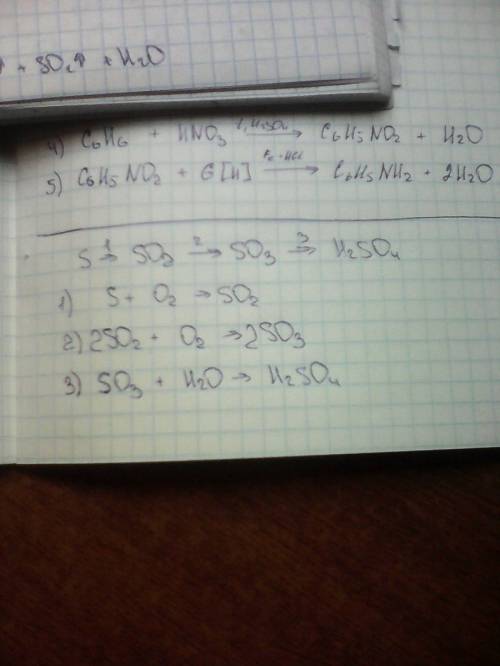 + SO₂↑ + H₂O
4) C₆H₆ + HNO₃ t, H₂SO₄→ C₆H₅NO₂ + H₂O
5) C₆H₅NO₂ + 6[H] Fe + HCl→ C₆H₅NH₂ + 2H₂O
S 1→ SO₂ 2→ SO₃ 3→ H₂SO₄
1) S + O₂ → SO₂
2) 2SO₂ + O₂ → 2SO₃
3) SO₃ + H₂O → H₂SO₄